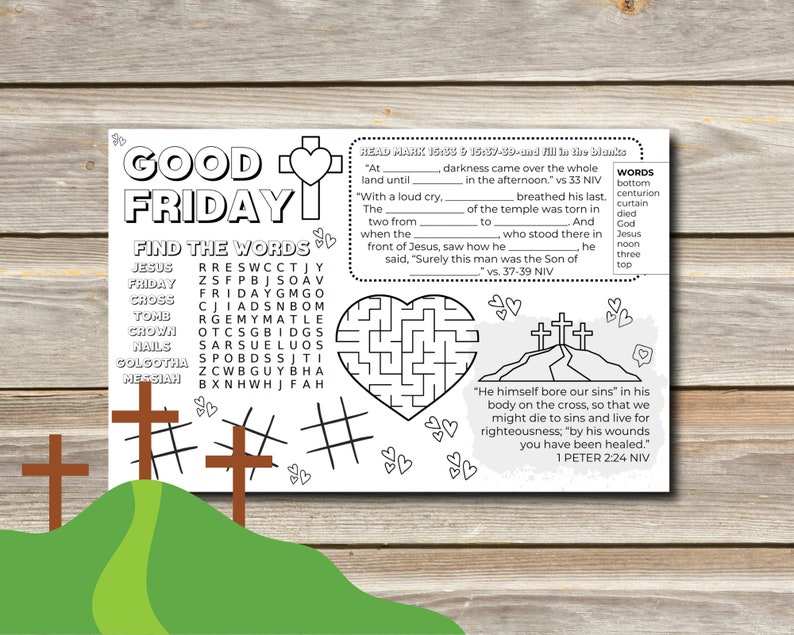 GOOD
FRIDAY
FIND THE WORDS
JESUS
FRIDAY
CROSS
TOMB
CROWN
NAILS
GOLGOTHA
MESSIAH
R R E S W C C T J Y
Z S F P B J S O A V
F R I D A Y G M G O
C J I A D S N B O M
R G E M Y M A T L E
O T C S G B I D G S
S A R S U E L U O S
S P O B D S S J T I
Z C W B G U Y B H A
B X N H W H J F A H
READ MARK 15:33 & 15:37-39-and fill in the blanks
"At __________, darkness came over the whole
land until __________ in the afternoon." vs 33 NIV
"With a loud cry, ____________ breathed his last.
The ______________ of the temple was torn in
two from __________ to __________. And
when the ______________, who stood there in
front of Jesus, saw how he ____________, he
said, "Surely this man was the Son of
____________." vs. 37-39 NIV
WORDS
bottom
centurion
curtain
died
God
Jesus
noon
three
top
"He himself bore our sins" in his
body on the cross, so that we
might die to sins and live for
righteousness; "by his wounds
you have been healed."
1 PETER 2:24 NIV